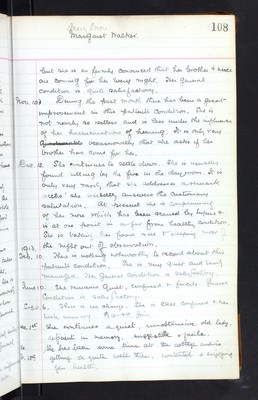 108
Margaret Walker.
but she is as firmly convinced that her brother & niece
are coming for her every night. Her general
condition is quite satisfactory.
Nov. During the past month there has been a great
improvement in this patient's condition. She is
not nearly so restless and is less under the influence
of her hallucinations of hearing. It is only very
occasionally that she asks if her
brother has come for her.
Dec. 12. She continues to settle down. She is usually
found sitting by the fire in the day room. It is
only very rarely that she addresses
salutation. At present she is complaining
of her nose which has been
is at one point in a far from healthy condition.
She is taking her food and sleeping most of
the night out of observation.
1913.
Feb. 10. There is nothing noteworthy to record about this
patient's condition. She is very quiet and easily
managed. Her General condition is satisfactory.
June 10. She remains Quiet, confused & facile. General
Condition is satisfactory.
There is no change. She is still confused & has
memory
1st She continues a quiet, old lady,
deficient in memory, suggestible & facile.
She has been some time at the cottage and is
getting on quite well there, contented & enjoying
good health.